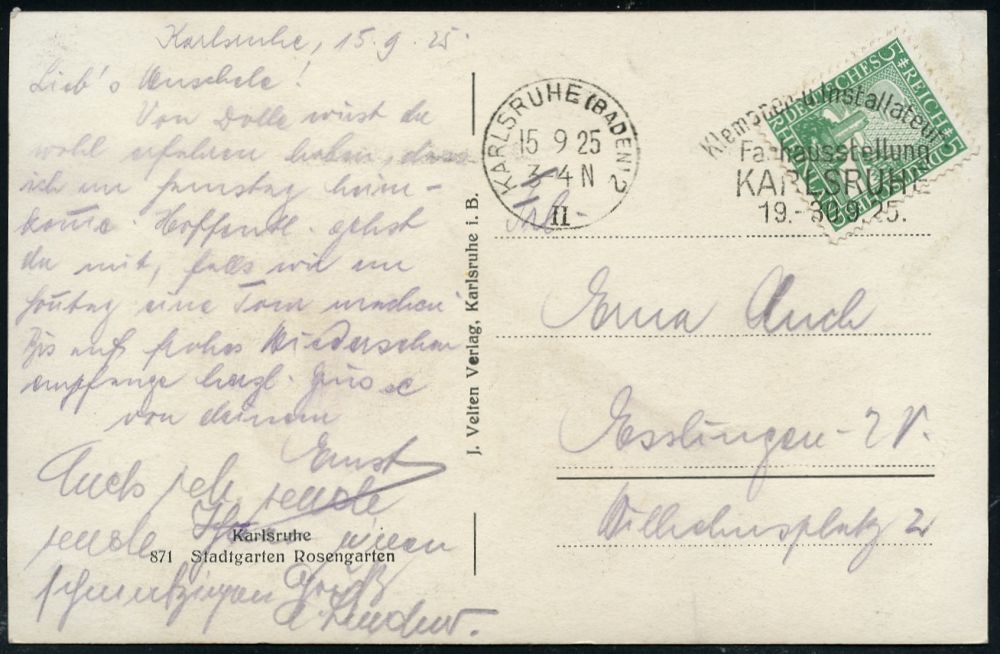 Karlsruhe, 15.9.25.
Lieb's !
Von Dolle wirst du
wohl erfahren haben, dass
ich am Samstag heim-
komme. Hoffentl. gehst
du mit, falls wir am
Sonntag eine Tour machen
Bis auf frohes Wiedersehen
empfange herzl. Grüsse
von deinem
Ernst
Auch ich sende
sende Ihnen einen
Gruß
Karlsruhe
871 Stadtgarten Rosengarten
J. Velten Verlag, Karlsruhe i. B.
KARLSRUHE (BADEN) 2
15 9 25
3-4 N
II
Klempner u Installateur
Fachausstellung
KARLSRUHE
19.-30.9.25.
5 DEUTSCHES REICH 5
Frl.
Erna Auch
Esslingen-N.
Wilhelmsplatz 2